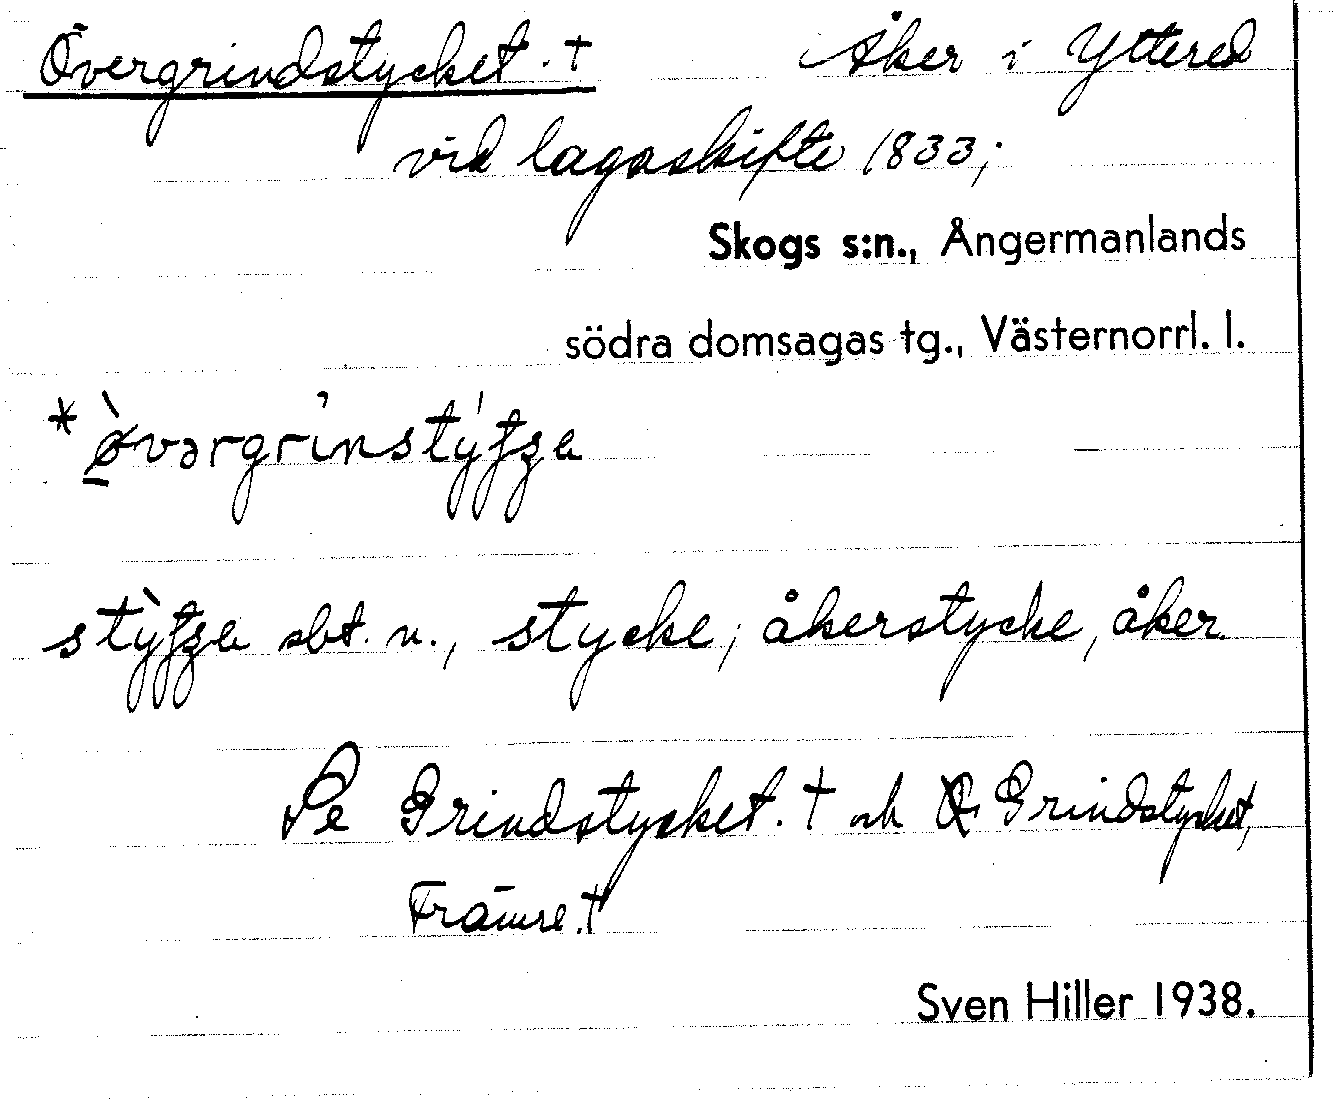 Övergrindstycket. † Åker i Yttered
vid lagaskifte 1833;
Skogs s:n., Ångermanlands
södra domsagas tg., Västernorrl. l.
sbt. n., stycke; åkerstycke, åker.
Se Grindstycket. † och Grindstycket,
Främre. †
Sven Hiller 1938.